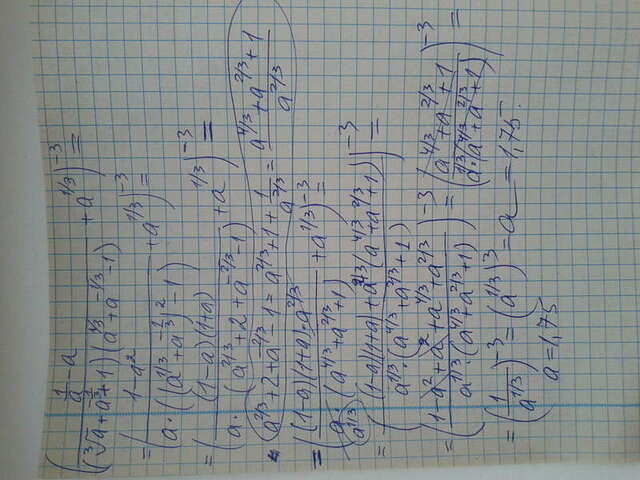 ((1/a - a)/((∛a + a^(-1/3) + 1)(a^(1/3) + a^(-1/3) - 1)) + a^(1/3))^(-3) =
= ((1-a^2)/(a·((a^(1/3) + a^(-1/3))^2 - 1)) + a^(1/3))^(-3) =
= ((1-a)(1+a)/(a·(a^(2/3) + 2 + a^(-2/3) - 1)) + a^(1/3))^(-3) =
(a^(2/3) + 2 + a^(-2/3) - 1 = a^(2/3) + 1 + 1/a^(2/3) = (a^(4/3) + a^(2/3) + 1)/a^(2/3))
= ((1-a)(1+a)·a^(2/3)/(a·(a^(4/3) + a^(2/3) + 1)) + a^(1/3))^(-3) =
a^(1/3)
= (((1-a)(1+a) + a^(2/3)(a^(4/3) + a^(2/3) + 1))/(a^(1/3)·(a^(4/3) + a^(2/3) + 1)))^(-3) =
= ((1 - a^2 + a^2 + a^(4/3) + a^(2/3))/(a^(1/3)·(a^(4/3) + a^(2/3) + 1)))^(-3) = ((a^(4/3) + a^(2/3) + 1)/(a^(1/3)·(a^(4/3) + a^(2/3) + 1)))^(-3) =
= (1/a^(1/3))^(-3) = (a^(1/3))^3 = a = 1,75.
a = 1,75